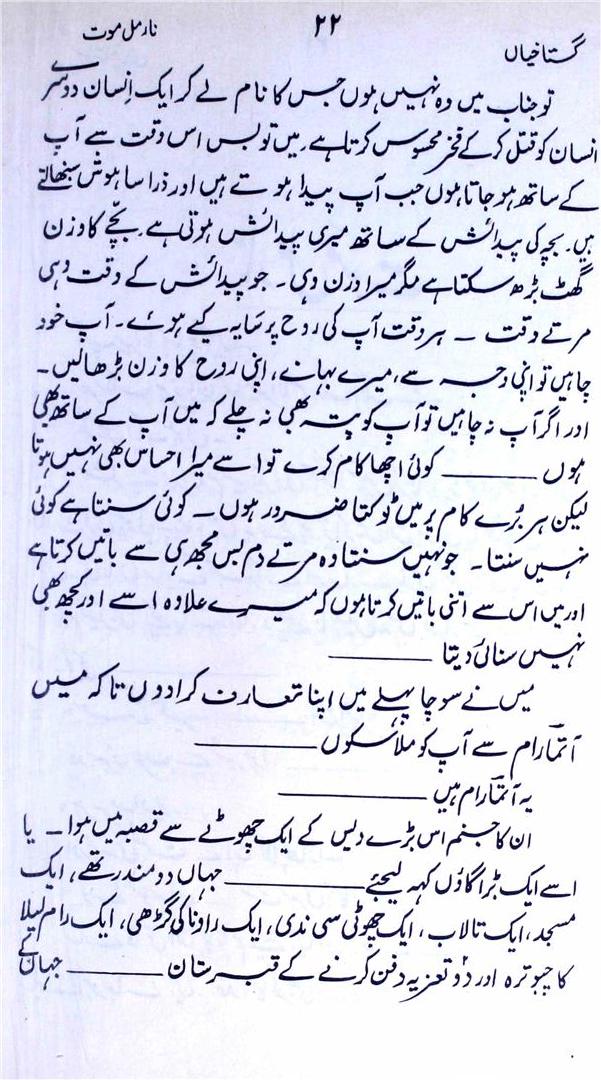 نارمل موت
۲۲
گستاخیاں
تو جناب میں وہ نہیں ہوں جس کا نام لے کر ایک اِنسان دوسرے
انسان کو قتل کر کے فخر محسوس کرتا ہے۔ میں تو بس اس وقت سے آپ
کے ساتھ ہو جاتا ہوں جب آپ پیدا ہوتے ہیں اور ذرا سا ہوش سنبھالتے
ہیں۔ بچہ کی پیدائش کے ساتھ میری پیدائش ہوتی ہے۔ بچّے کا وزن
گھٹ بڑھ سکتا ہے مگر میرا وزن وہی۔ جو پیدائش کے وقت وہی
مرتے وقت ۔ ہر وقت آپ کی روح پر سَایہ کیے ہوئے۔ آپ خود
چاہیں تو اپنی وجہ سے، میرے بہانے، اپنی روح کا وزن بڑھالیں۔
اور اگر آپ نہ چاہیں تو آپ کو پتہ بھی نہ چلے کہ میں آپ کے ساتھ بھی
ہوں ـــــــــ کوئی اچھا کام کرے تو اسے میرا احساس بھی نہیں ہوتا
لیکن ہر بُرے کام پر میں ٹوکتا ضرور ہوں۔ کوئی سنتا ہے کوئی
نہیں سنتا۔ جو نہیں سنتا وہ مرتے دم بس مجھ ہی سے باتیں کرتا ہے
اور میں اس سے اتنی باتیں کرتا ہوں کہ میرے علاوہ اسے اور کچھ بھی
نہیں سنائی دیتا ـــــــــ
میں نے سوچا پہلے میں اپنا تعارف کرا دوں تاکہ میں
آتمارام سے آپ کو ملا سکوں ـــــــــ
یہ آتمارام ہیں ـــــــــ
ان کا جنم اس بڑے دیس کے ایک چھوٹے سے قصبہ میں ہوا۔ یا
اسے ایک بڑا گاؤں کہہ لیجئے ـــــــــ جہاں دو مندر تھے، ایک
مسجد، ایک تالاب، ایک چھوٹی سی ندی، ایک راونا کی گڑھی، ایک رام لیلا
کا چبوترہ اور دو تعزیہ دفن کرنے کے قبرستان ـــــــــ جہاں کے